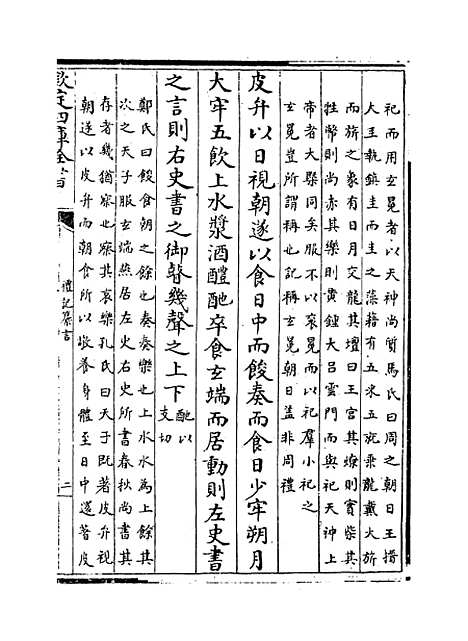 祀而用玄冕者以天神尚質馬氏曰周之朝日王搢
大圭執鎮圭而圭之藻藉有五采五就乗龍戴大旂
而旂之象有日月交龍其壇曰王宮其燎則實柴其
牲幣則尚赤其樂則黄鍾大吕雲門而與祀天神上
帝者大槩同矣服不以衮冕而以祀羣小祀之
玄冕豈所謂稱也記稱玄冕朝日盖非周禮
皮弁以日視朝遂以食日中而餕奏而食日少牢朔月
大牢五飲上水漿酒醴酏卒食玄端而居動則左史書
之言則右史書之御瞽幾聲之上下
酏以
支切
鄭氏曰餕食朝之餘也奏奏樂也上水水為上餘其
次之天子服玄端燕居左史右史所書春秋尚書其
存者幾猶察也察其哀樂孔氏曰天子既著皮弁視
朝遂以皮弁而朝食所以敬養身體至日中還著皮
欽定四庫全書
禮記纂言
二